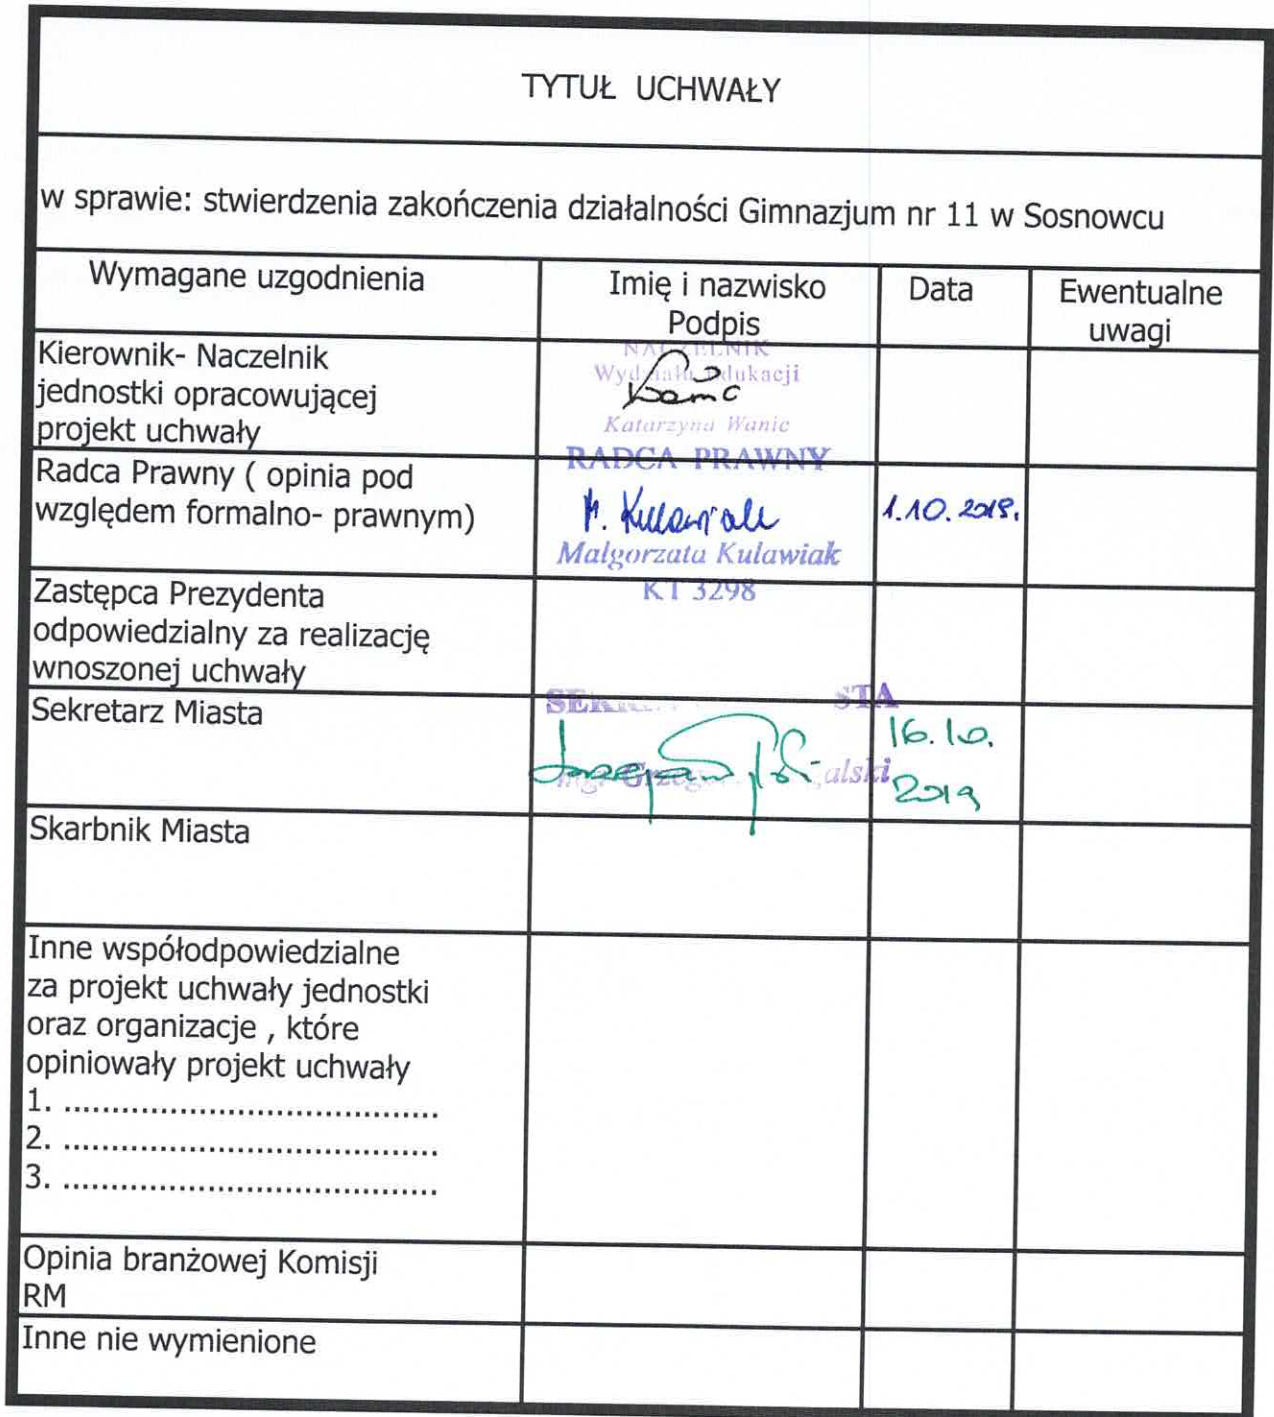 TYTUŁ UCHWAŁY
w sprawie: stwierdzenia zakończenia działalności Gimnazjum nr 11 w Sosnowcu
Wymagane uzgodnienia
Imię i nazwisko
Podpis
Data
Ewentualne
uwagi
Kierownik- Naczelnik
jednostki opracowującej
projekt uchwały
NACZELNIK
Wydziału Edukacji
Katarzyna Wanic
Radca Prawny ( opinia pod
względem formalno- prawnym)
RADCA PRAWNY
M. Kulawiak
Małgorzata Kulawiak
KT 3298
1.10.2019.
Zastępca Prezydenta
odpowiedzialny za realizację
wnoszonej uchwały
Sekretarz Miasta
16.10.
2019
Skarbnik Miasta
Inne współodpowiedzialne
za projekt uchwały jednostki
oraz organizacje , które
opiniowały projekt uchwały
1. .......................................
2. .......................................
3. .......................................
Opinia branżowej Komisji
RM
Inne nie wymienione